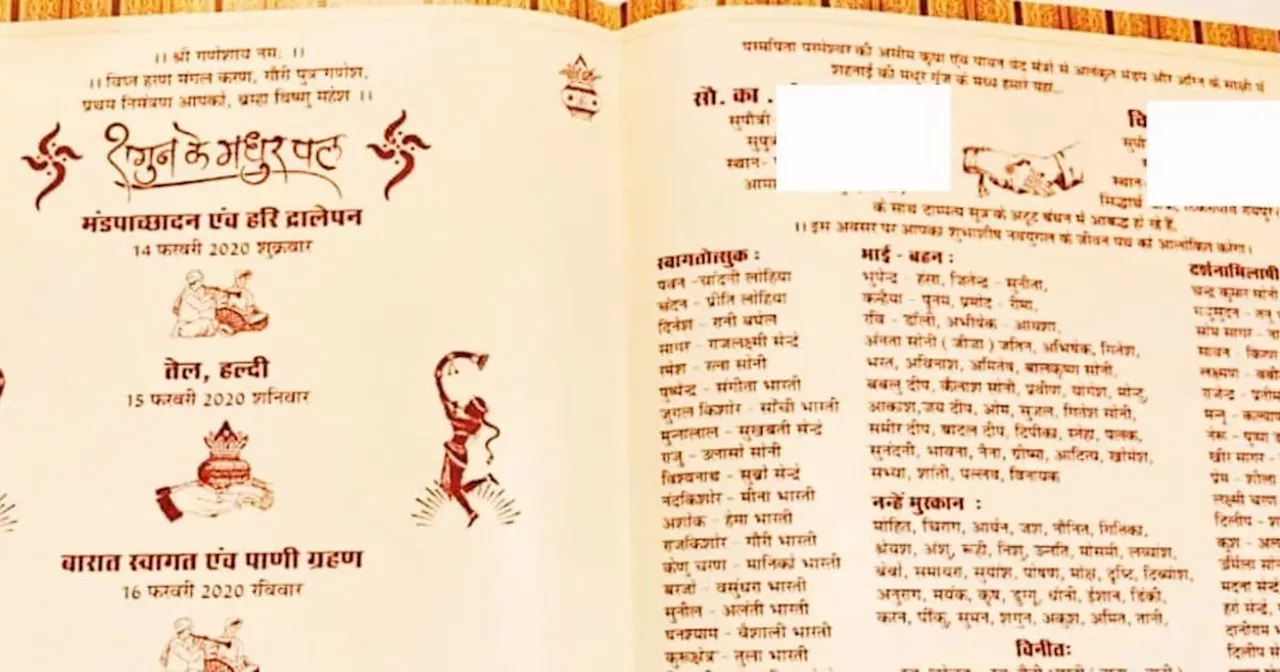 ।। श्री गणेशाय नमः ।।
।। विघ्न हरण मंगल करण, गौरी पुत्र गणेश,
प्रथम निमंत्रण आपको, ब्रम्हा विष्णु महेश ।।
शगुन के मधुर पल
मंडपाच्छादन एंव हरि द्रालेपन
14 फरवरी 2020 शुक्रवार
तेल, हल्दी
15 फरवरी 2020 शनिवार
बारात स्वागत एंव पाणी ग्रहण
16 फरवरी 2020 रविवार
परमपिता परमेश्वर की असीम कृपा एंव पावन वेद मंत्रों से अलंकृत मंडप और अग्नि के साक्षी में
शहनाई की मधुर गुंज के मध्य हमारे यहां...
सौ. का .
सुपौत्री-
सुपु
स्थान-
चि
सुपौ
स्थान-
के साथ दाम्पत्य सुत्र के अटूट बंधन में आबद्ध हो रहे हैं,
।। इस अवसर पर आपका शुभाशीष नवयुगल के जीवन पथ को आलोकित करेगा।
स्वागतोत्सुक :
पवन - चांदनी लोहिया
चंदन - प्रीति लोहिया
दिनेश - रानी बघेल
सागर - राजलक्ष्मी सेन्द्रे
रमेश - रत्ना सोनी
पुष्पेन्द्र - संगीता भारती
जुगल किशोर - साँची भारती
मुन्नालाल - सुखबती सेन्द्रे
राजु - उलासो सोनी
विश्वनाथ - सुब्रो सेन्द्रे
नंदकिशोर - मीना भारती
अशोक - हेमा भारती
राजकिशोर - गौरी भारती
वेणु चरण - मानिका भारती
बरजो - वसुंधरा भारती
सुनील - अलंती भारती
घनश्याम - वैशाली भारती
कुरूक्षेत्र - तुला भारती
भाई - बहन :
भुपेन्द्र - हंसा, जितेन्द्र - सुनीता,
कन्हैया - पुनम, प्रमोद - रीमा,
रवि - डॉली, अभीषेक - आयशा,
अंनता सोनी ( जीजा ) जतिन, अभिषेक, गितेश,
भरत, अविनाश, अमितेष, बालकृष्ण सोनी,
बबलु दीप, कैलाश सोनी, प्रवीण, योगेश, मोन्टु,
आकाश, जय दीप, ओम, सुजल, गितेश सोनी,
समीर दीप, बादल दीप, दिपीका, स्नेहा, पलक,
सुनंदनी, भावना, नैना, ग्रीष्मा, आदित्य, खोमेश,
सभ्या, शांती, पल्लव, विनायक
नन्हें मुस्कान :
मोहित, चिराग, आर्यन, जश, नौनित, गितिका,
श्रेयश, अंशु, रूही, निशु, उन्नति, मौसमी, लव्यांश,
सुर्याश, पोषण, मोक्ष, दृष्टि, दिव्यांश,
अनुराग, मयंक, कृष, दुग्गु, धोनी, ईशान, डिंकी,
करन, पंकि, सुमन, शगुन, अकुश, अमित, तानी,
विनीतः
दर्शनाभिलाषी
चन्द्र कुमार सोनी